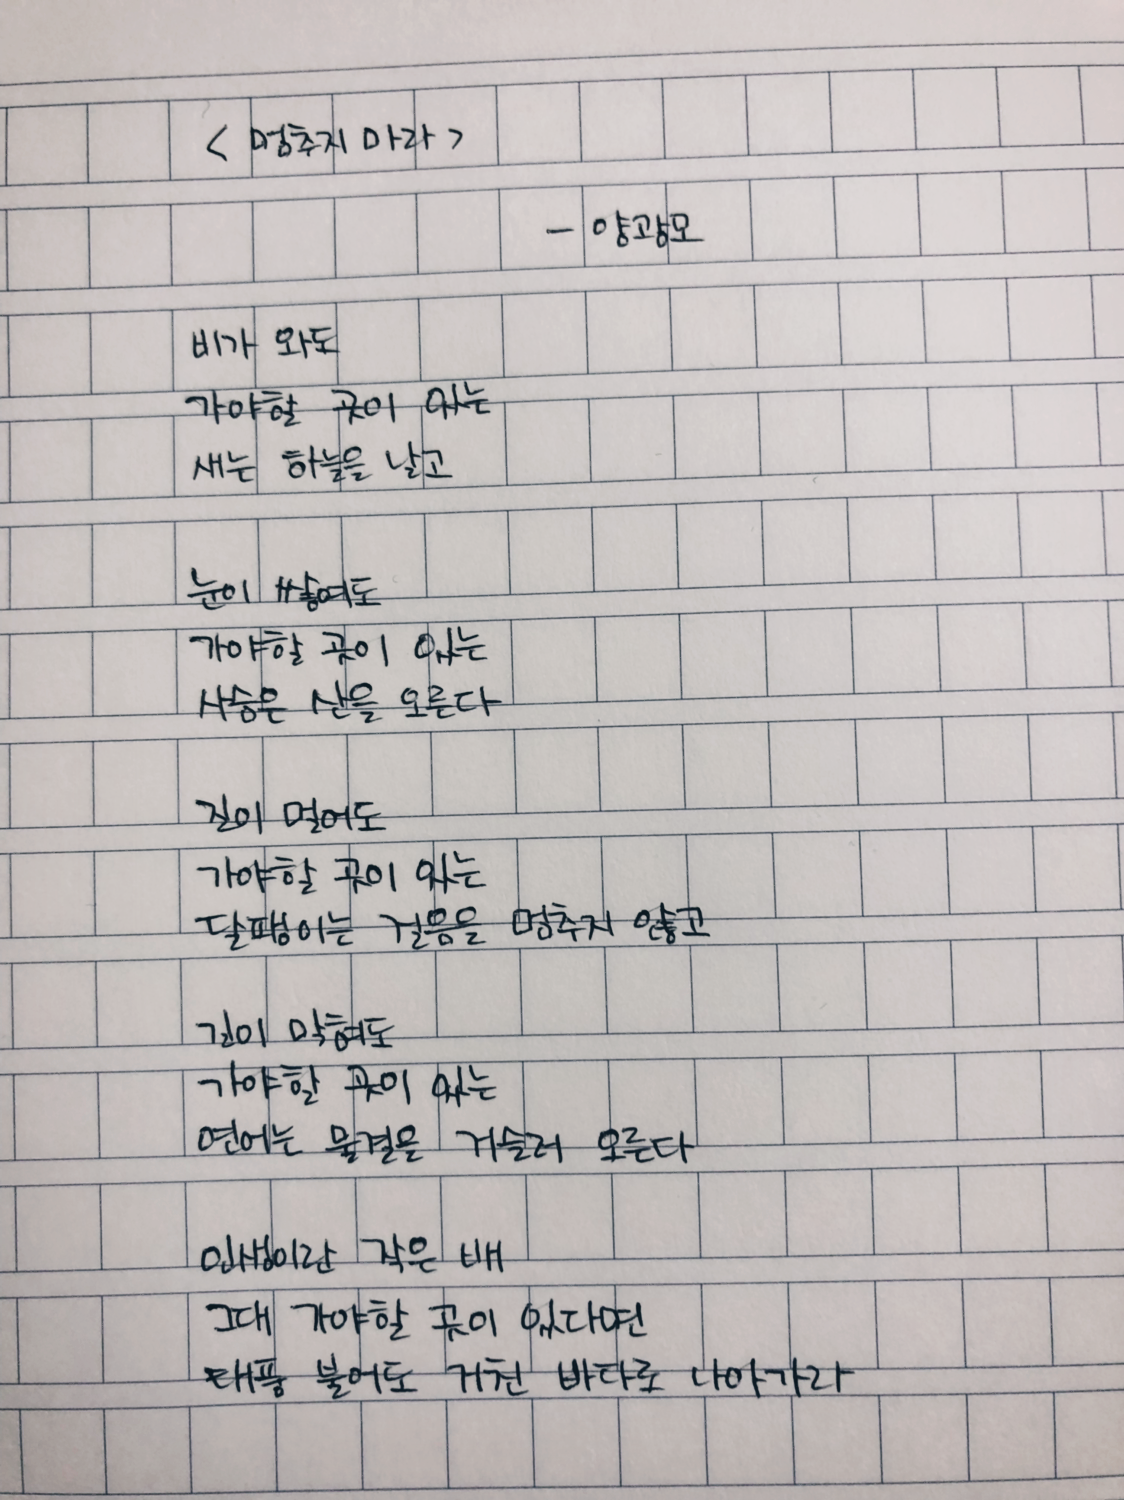 < 멈추지 마라 >
- 양광모
비가 와도
가야할 곳이 있는
새는 하늘을 날고
눈이 쌓여도
가야할 곳이 있는
사슴은 산을 오른다
길이 멀어도
가야할 곳이 있는
달팽이는 걸음을 멈추지 않고
길이 막혀도
가야할 곳이 있는
연어는 물결을 거슬러 오른다
인생이란 작은 배
그대 가야할 곳이 있다면
태풍 불어도 거친 바다로 나아가라